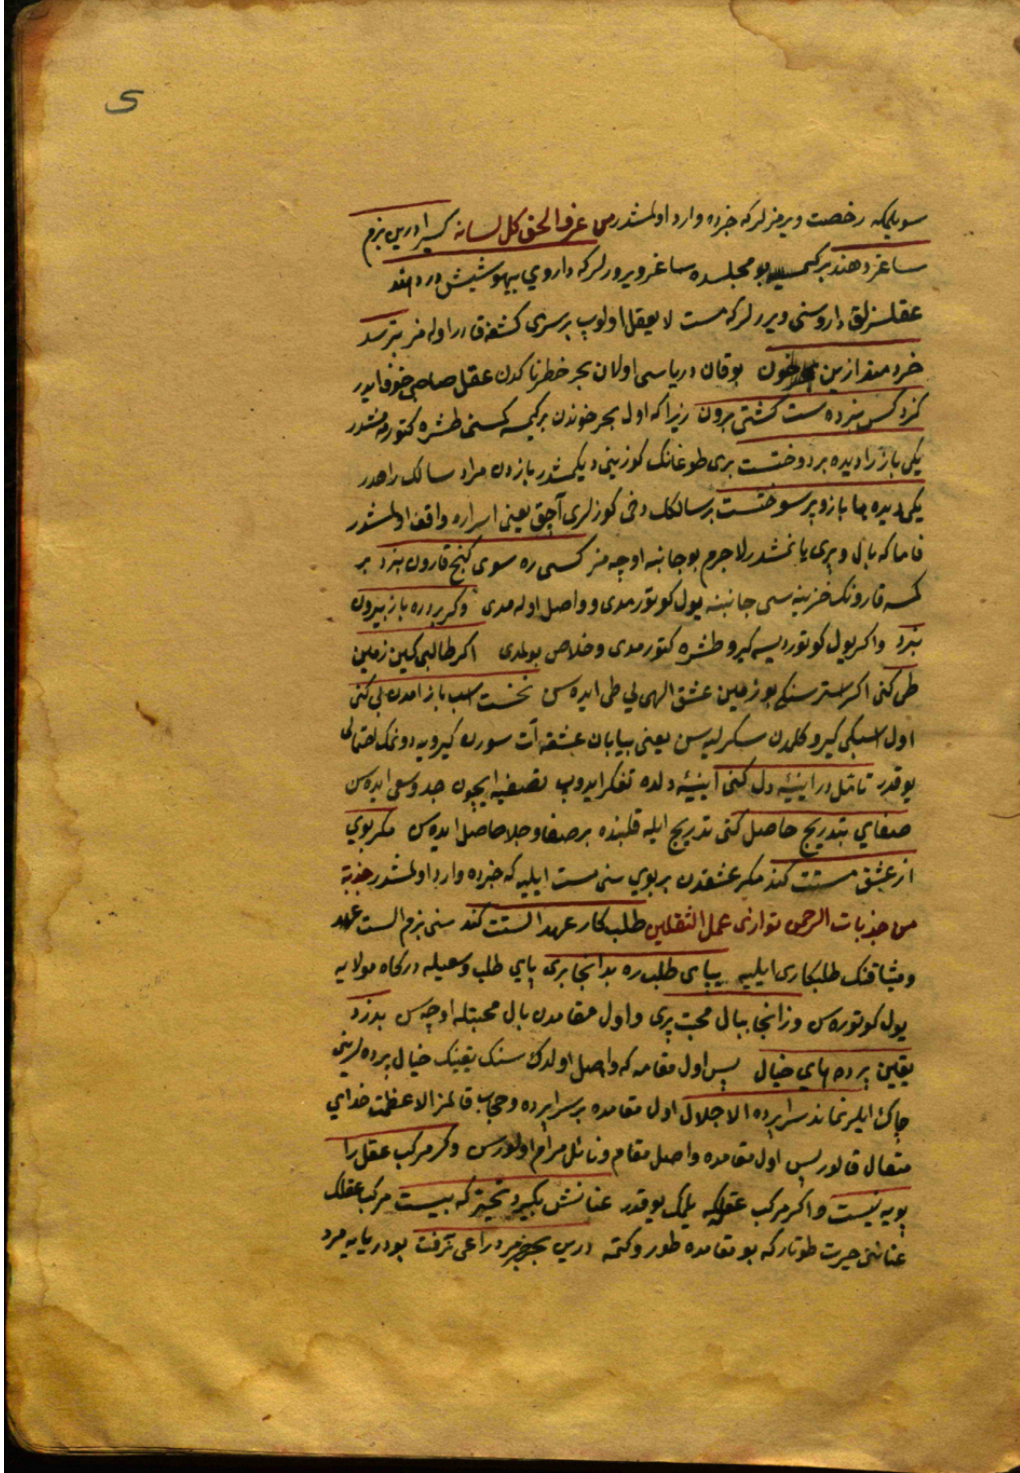 5
سويلمكه رخصت ويرمزلر كه خبرده وارد اولمشدر من عرف الحق كل لسانه كسيرا درين بزم
ساغر دهند بر كمسيه بو مجلسده ساغر ويرورلر كه داروى بيهوشيش در دهند
عقلسزلق داروسنى ويررلر كه مست لا يعقل اولوب بر سرى كشفه قادر اوله مز بترسد
خردمند ازين بحر خون بو قان درياسى اولان بحر خطرناكدن عقل صاحبى خوف ايدر
كزو كس نبرده ست كشتى برون زيرا كه اول بحر خوندن بر كيمسه كمسنى طشره كتورمه مشدر
يكى باز را ديده بر دوختست برى طوغانك كوزينى ديكمشدر بازدن مراد سالك راهدر
يكى ديده ها باز و پر سوختست بر سالكك دخى كوزلرى آچق يعنى اسراره واقف اولمشدر
فاما كه بال و پرى يانمشدر لاجرم بو جانبه اوچه مز كسى ره سوى كنج قارون نبرد بر
كمسه قارونك خزينه سى جانبنه يول كوتورمدى و واصل اوله مدى وكر برد ره باز بيرون
نبرد واكر يول كوتورديسه كيرو طشره كتورمدى و خلاص بولمدى اكر طالبى كين زمين
طى كنى اكر استرسنكه بو زمين عشق الهى يى طى ايده سن نخست اسب باز آمدن پى كنى
اول اسبكى كيرو كلمدن سكرليه سن يعنى بيابان عشقه آت سورن كيرويه دونمك احتمالى
يوقدر تامل در آيينهٔ دل كنى آيينهٔ دلده تفكر ايدوب تصفيه ايچون جد و سعى ايده سن
صفايى بتدريج حاصل كنى تدريج ايله قلبنده بر صفا و جلا حاصل ايده سن مكر بويى
از عشق مستت كند مكر عشقدن بر بوى سنى مست ايليه كه خبرده وارد اولمشدر جذبة
من جذبات الرحمن توازى عمل الثقلين طلبكار عهد الستت كند سنى بزم الست عهد
وميثاقنك طلبكارى ايليه بپاى طلب ره بدانجا برى پاى طلب و سعيله دركاه مولايه
يول كوتوره سن وز آنجا ببال محبت پرى و اول مقامدن بال محبتله اوچه سن بدرد
يقين پرده هاى خيال پس اول مقامه كه واصل اولدك سنك يقينك خيال پرده لرينى
چاك ايلر نماند سراپرده الا جلال اول مقامده بر سراپرده و حجاب قالمز الا عظمت خداى
متعال قالور پس اول مقامده واصل مقام و نائل مرام اولورسن وكر مركب عقل را
پويه نيست واكر مركب عقلكه يلمك يوقدر عنانش بكيرد تحير كه بيست مركب عقلك
عناننى حيرت طوتار كه بو مقامده طور وكتمه درين بحر جز مرد راعى نرفت بو دريايه مرد